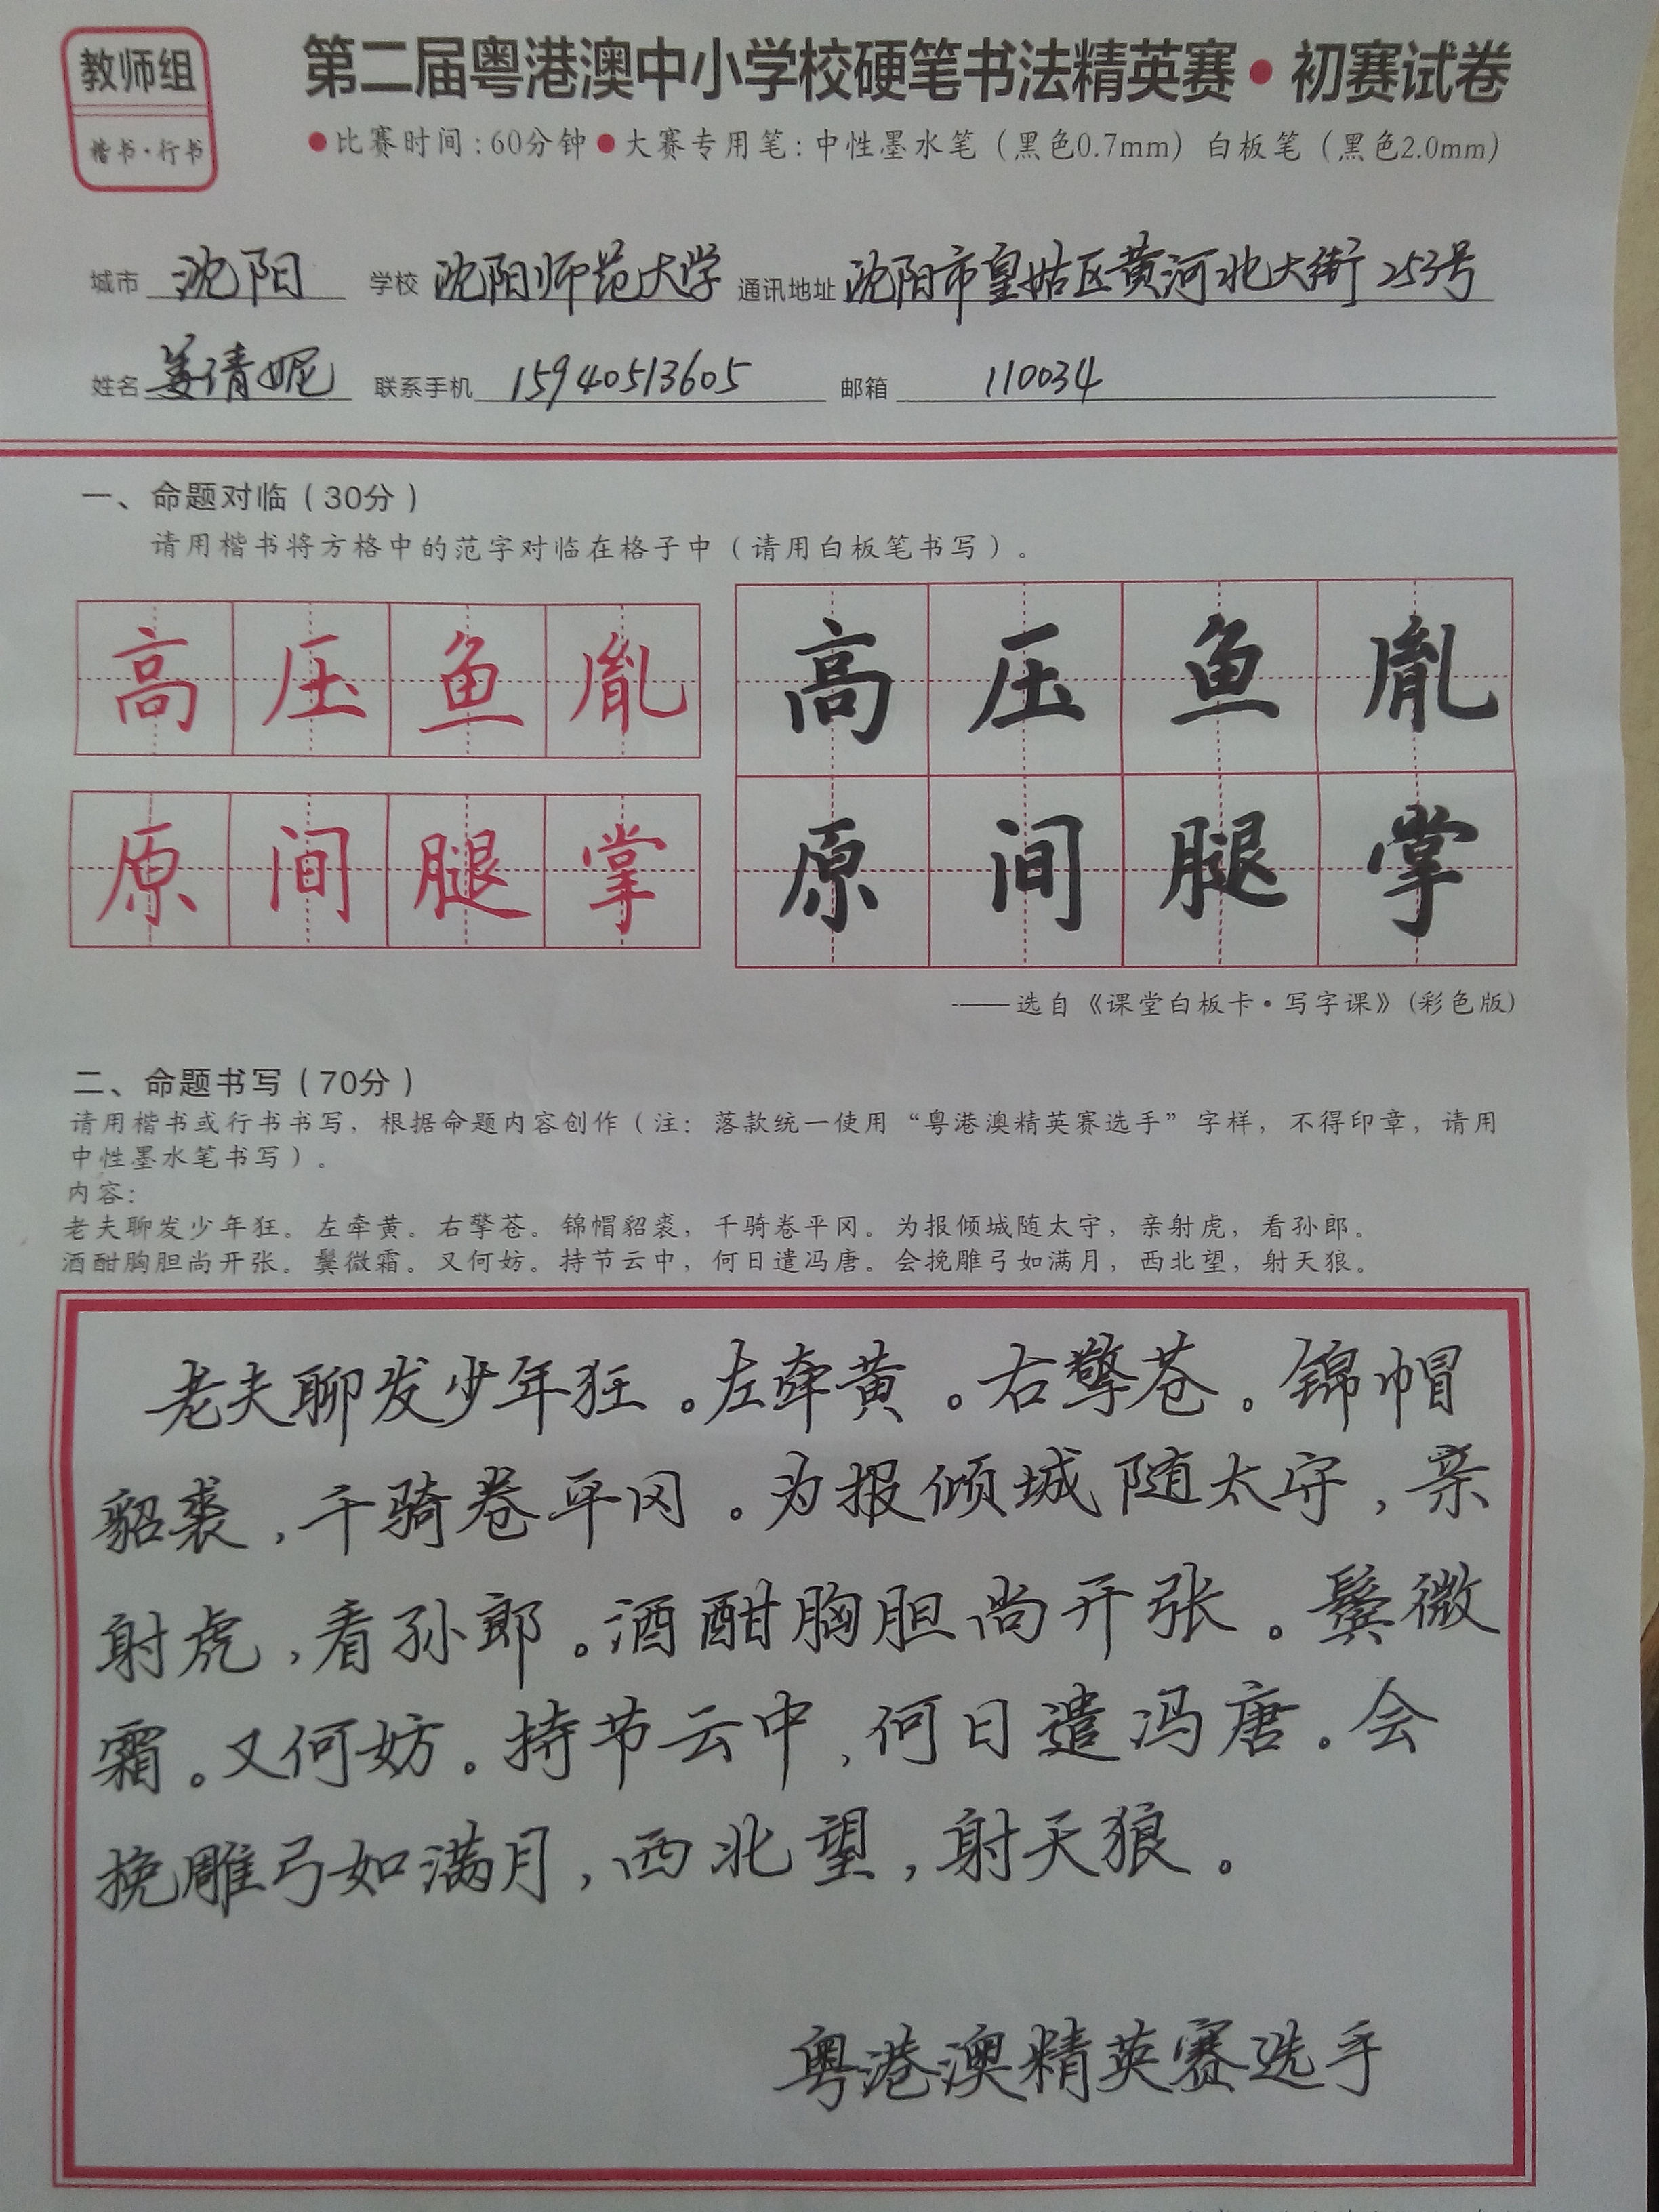 教师组
楷书·行书
第二届粤港澳中小学校硬笔书法精英赛•初赛试卷
•比赛时间:60分钟•大赛专用笔:中性墨水笔（黑色0.7mm）白板笔（黑色2.0mm）
城市 沈阳 学校 沈阳师范大学 通讯地址 沈阳市皇姑区黄河北大街253号
姓名 姜倩妮 联系手机 15940513605 邮箱 110034
一、命题对临（30分）
请用楷书将方格中的范字对临在格子中（请用白板笔书写）。
高压鱼胤 高压鱼胤
原间腿掌 原间腿掌
——选自《课堂白板卡•写字课》(彩色版)
二、命题书写（70分）
请用楷书或行书书写，根据命题内容创作（注：落款统一使用“粤港澳精英赛选手”字样，不得印章，请用
中性墨水笔书写）。
内容：
老夫聊发少年狂。左牵黄。右擎苍。锦帽貂裘，千骑卷平冈。为报倾城随太守，亲射虎，看孙郎。
酒酣胸胆尚开张。鬓微霜。又何妨。持节云中，何日遣冯唐。会挽雕弓如满月，西北望，射天狼。
老夫聊发少年狂。左牵黄。右擎苍。锦帽
貂裘，千骑卷平冈。为报倾城随太守，亲
射虎，看孙郎。酒酣胸胆尚开张。鬓微
霜。又何妨。持节云中，何日遣冯唐。会
挽雕弓如满月，西北望，射天狼。
粤港澳精英赛选手